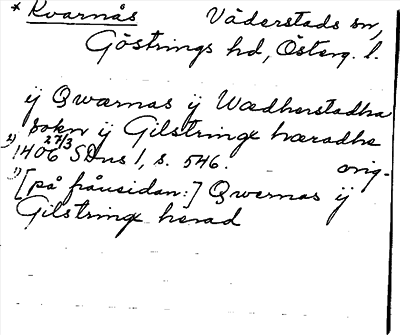 * Kvarnås Väderstads sn,
Göstrings hd, Österg. l.
ij Qwærnas ij Wædherstadha
sokn ij Gilstringx hæradhe
1) 1406 27/3 SDns 1, s. 546. orig.
1) [på frånsidan:] Qwernas ij
Gilstringx herad